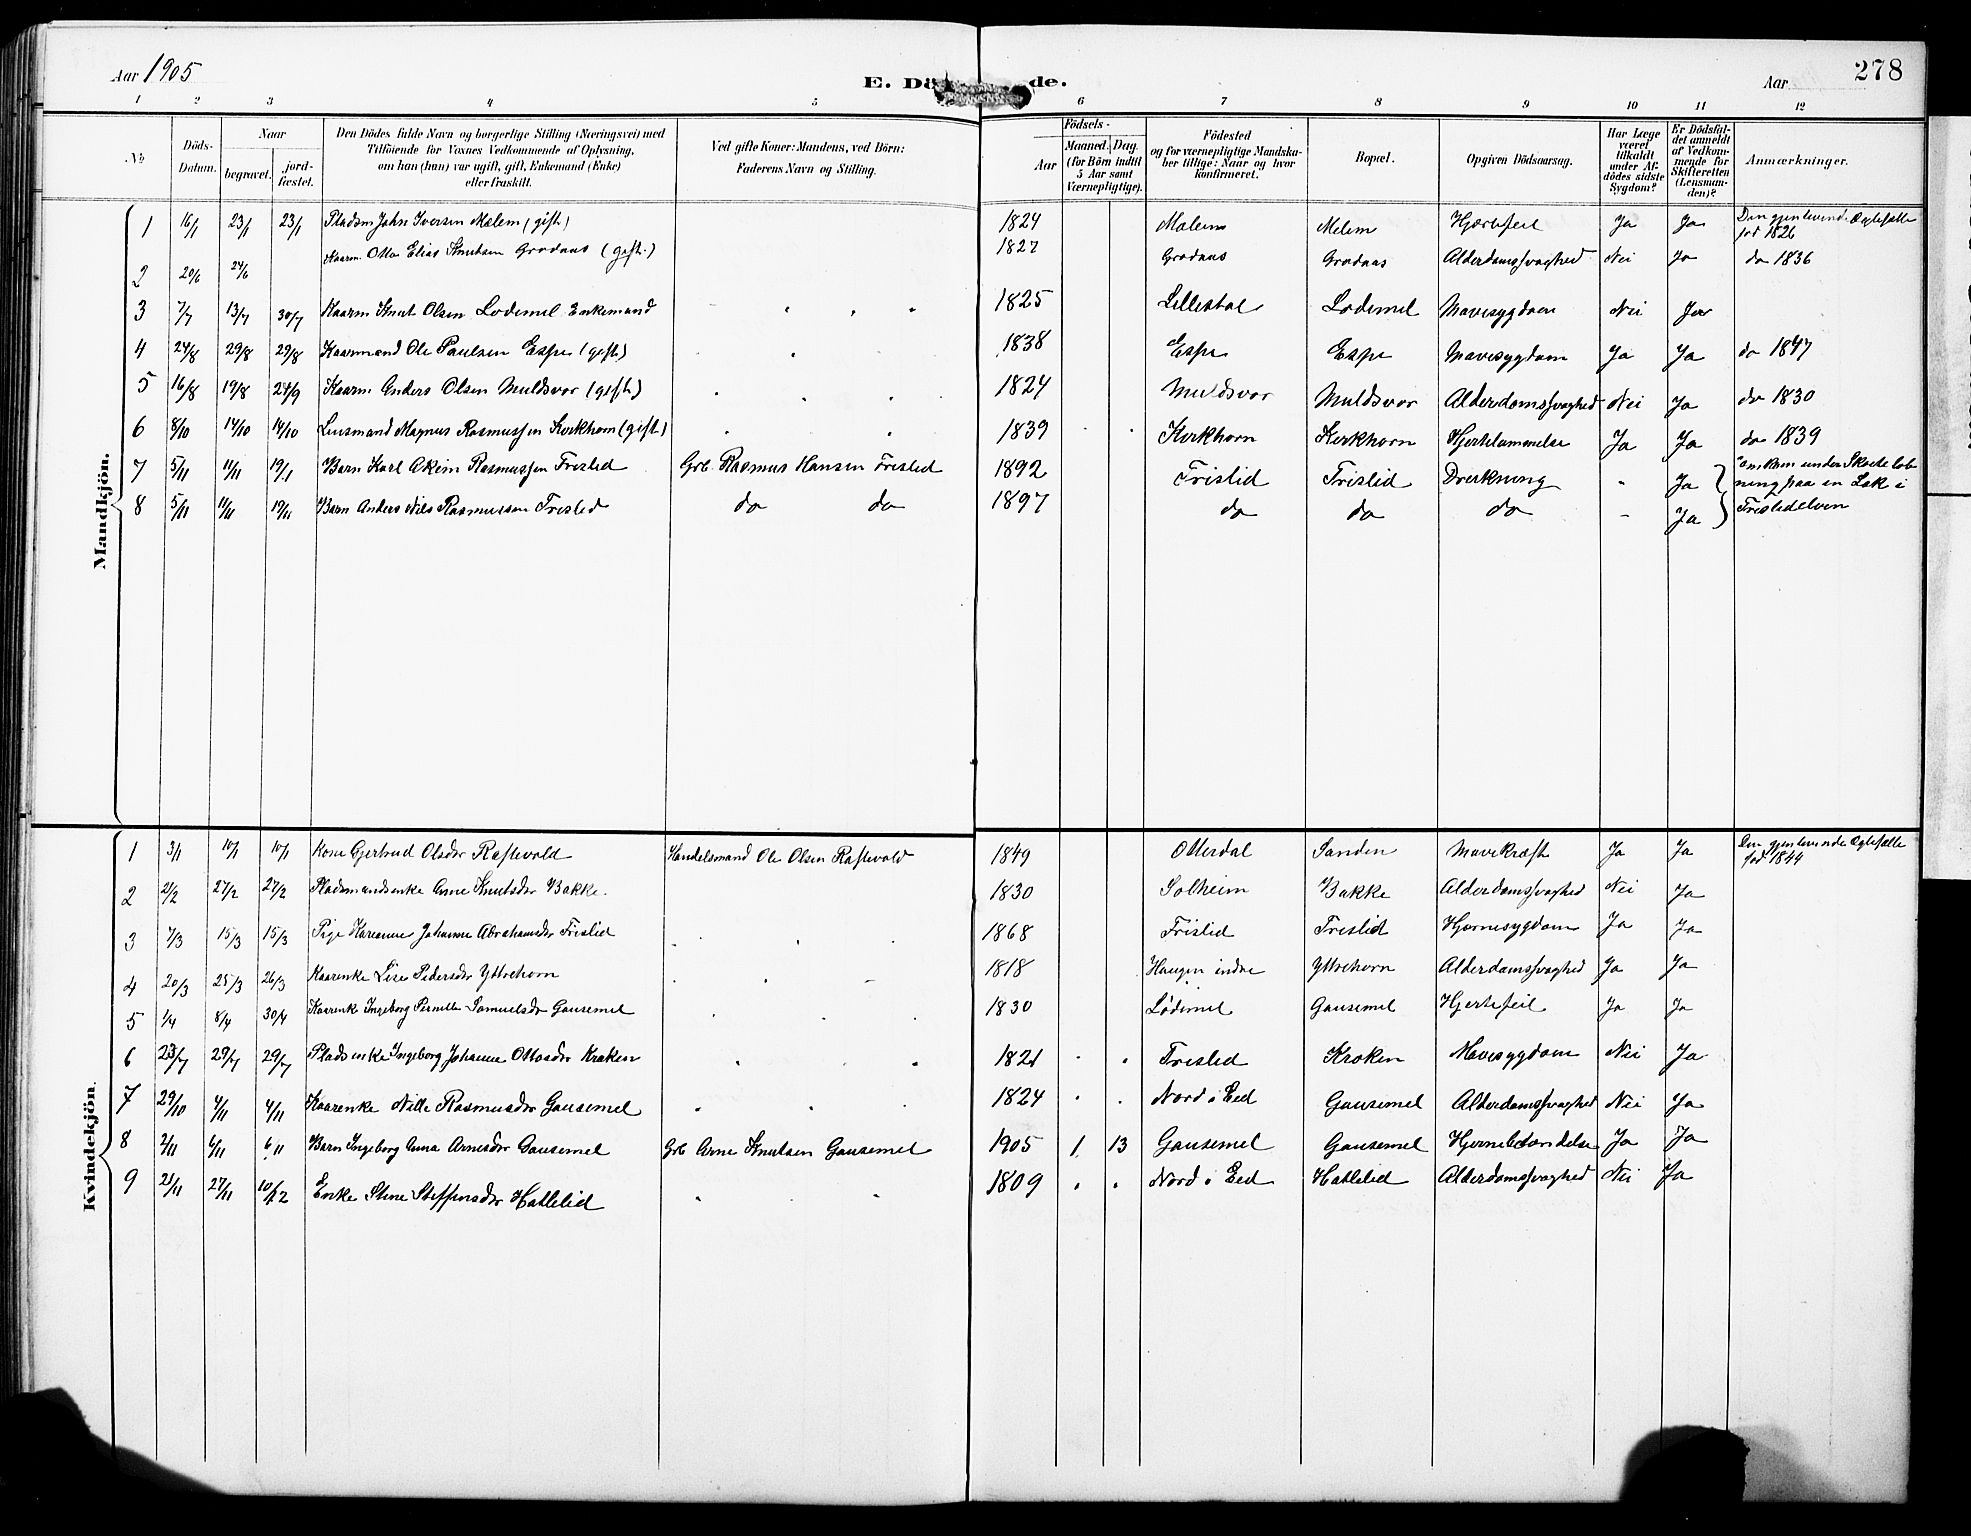 Aar 1905
E. Dö de.
Aar
278
1 2 3 4 5 6 7 8 9 10 11 12
No
Döds-Datum.
Naar
begravet.
jord-fæstet.
Den Dödes fulde Navn og borgerlige Stilling (Næringsvei) med
Tilföiende for Voxnes Vedkommende af Oplysning,
om han (hun) var ugift, gift, Enkemand (Enke)
eller fraskilt.
Ved gifte Koner: Mandens, ved Börn:
Faderens Navn og Stilling.
Födsels-
Aar
Maaned. Dag.
(for Börn indtil
5 Aar samt
Værnepligtige).
Födested
og for værnepligtige Mandska-
ber tillige: Naar og hvor
konfirmeret.
Bopæl.
Opgiven Dödsaarsag.
Har Læge
været
tilkaldt
under Af-
dödes sidste
Sygdom?
Er Dödsfal-
det anmeldt
af Vedkom-
mende for
Skifteretten
(Lensman-
den)?
Anmærkninger.
Mandkjön.
1 16/1 23/1 23/1 Pladsm John Iversen Mælem (gift) 1824 Malem Melem Hjærtefeil Ja Ja Den gjenlevende Ægtefælle
fød 1826
2 20/6 24/6 Kaarm. Otto Elias Knutsen Grodaas (gift) 1827 Grodaas Grodaas Alderdomssvaghed Nei Ja do 1836
3 7/7 13/7 30/7 Kaarm Knut Olsen Lødemel Enkemand 1825 Lillestøl Lødemel Mavesygdom Nei Ja
4 24/8 29/8 29/8 Kaarmand Ole Paulsen Espe (gift) 1838 Espe Espe Mavesygdom Ja Ja do 1847
5 16/8 19/8 24/9 Kaarm Anders Olsen Muldsvor (gift) 1824 Muldsvor Muldsvor Alderdomssvaghed Nei Ja do 1830
6 8/10 14/10 14/10 Lensmand Magnus Rasmussen Kirkhorn (gift) 1839 Kirkhorn Kirkhorn Hjertelammelse Ja Ja do 1839
7 5/11 11/11 19/11 Barn Karl Akim Rasmussen Frislid Grb. Rasmus Hansen Frislid 1892 Frislid Frislid Drukning - Ja omkom under Skøiteløb-
ning paa en Løk i
8 5/11 11/11 19/11 Barn Anders Nils Rasmussen Frislid do do 1897 do do do - Ja Frislidelven
Kvindekjön.
1 3/1 10/1 10/1 Kone Gjertrud Olsdtr Raftevold Handelsmand Ole Olsen Raftevold 1849 Otterdal Sanden Mavekræft Ja Ja Den gjenlevende Ægtefælle
fød 1844
2 2/2 27/2 27/2 Pladsmandsenke Anne Knutsdtr Bakke. 1830 Solheim Bakke Alderdomssvaghed Nei Ja
3 7/3 15/3 15/3 Pige Karianne Johanne Abrahamsdtr Frislid 1868 Frislid Frislid Hjernesygdom Ja Ja
4 20/3 25/3 26/3 Kaarenke Lise Pedersdtr Yttrehorn 1818 Haugen indre Yttrehorn Alderdomssvaghed Ja Ja
5 1/4 8/4 30/4 Kaarenk Ingeborg Pernille Samuelsdtr Gausemel 1830 Lødemel Gausemel Hjertefeil Ja Ja
6 23/7 29/7 29/7 Pladsenke Ingeborg Johanne Ottosdtr Kroken 1821 Frislid Kroken Mavesygdom Nei Ja
7 29/10 4/11 4/11 Kaarenke Nille Rasmusdtr Gausemel 1824 Nord i Eid Gausemel Alderdomssvaghed Nei Ja
8 2/11 6/11 6/11 Barn Ingeborg Anna Arnesdtr Gausemel Grb Arne Knutsen Gausemel 1905 1 13 Gausemel Gausemel Hjernebetændelse Ja Ja
9 21/11 27/11 10/12 Enke Stine Steffensdtr Hatlelid 1809 Nord i Eid Hatlelid Alderdomssvaghed Nei Ja